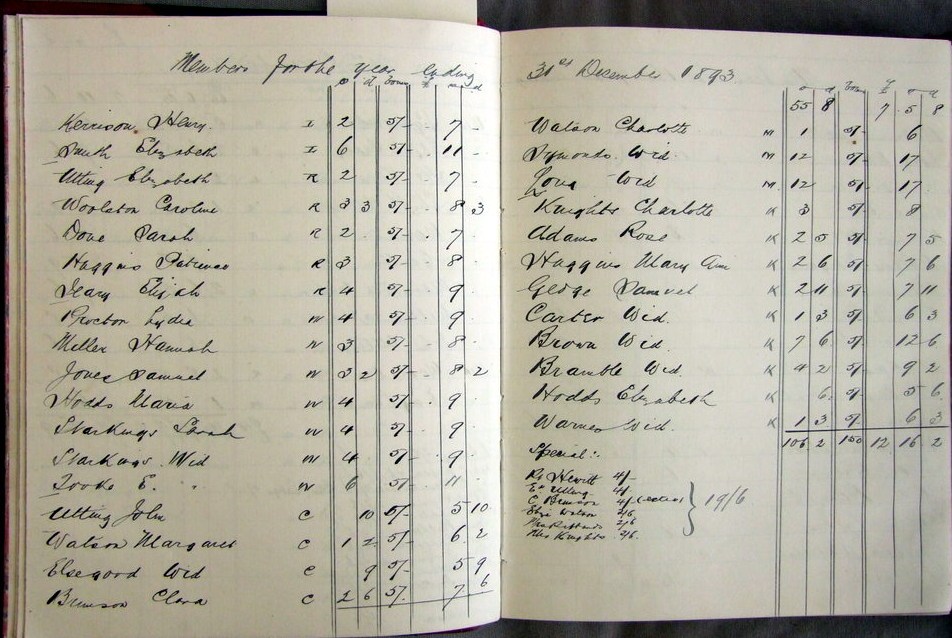 Members for the year ending
s d Bonus £ s d
Kerrison Henry. I 2 5/- 7 -
Smith Elizabeth I 6 5/- 11 -
Utting Elizabeth R 2 5/- 7 -
Woolston Caroline R 3 3 5/- 8 3
Dove Sarah R 2 5/- 7 -
Huggins Patience R 3 5/- 8 -
Leary Elijah R 4 5/- 9
Procton Lydia W 4 5/- 9
Miller Hannah W 3 5/- 8
Jones Samuel W 3 2 5/- 8 2
Hodds Maria W 4 5/- 9
Starkings Sarah W 4 5/- 9
Starkings Wid W 4 5/- 9
Tooke E. W 6 5/- 11
Utting John C 10 5/- 5 10
Watson Margaret C 1 2 5/- 6 2
Elsegood Wid C 9 5/- 5 9
Brunson Clara C 2 6 5/- 7 6
31st December 1893
s d Bonus £ s d
55 8 7 5 8
Watson Charlotte M 1 5/- 6
Symonds Wid M 12 5/- 17
Wid M 12 5/- 17
Knights Charlotte K 3 5/- 8
Adams Rose K 2 5 5/- 7 5
Huggins Mary Ann K 2 6 5/- 7 6
Gedge Samuel K 2 11 5/- 7 11
Carter Wid. K 1 3 5/- 6 3
Brown Wid. K 7 6 5/- 12 6
Bramble Wid K 4 2 5/- 9 2
Hodds Elizabeth K 6 5/- 5 6
Warnes Wid. K 1 3 5/- 6 3
106 2 150 12 16 2
Special:-
Hewitt 4/-
Utting 4/-
C Brunson 4/-
Watson 2/6
2/6
Mrs Knights 2/6
19/6